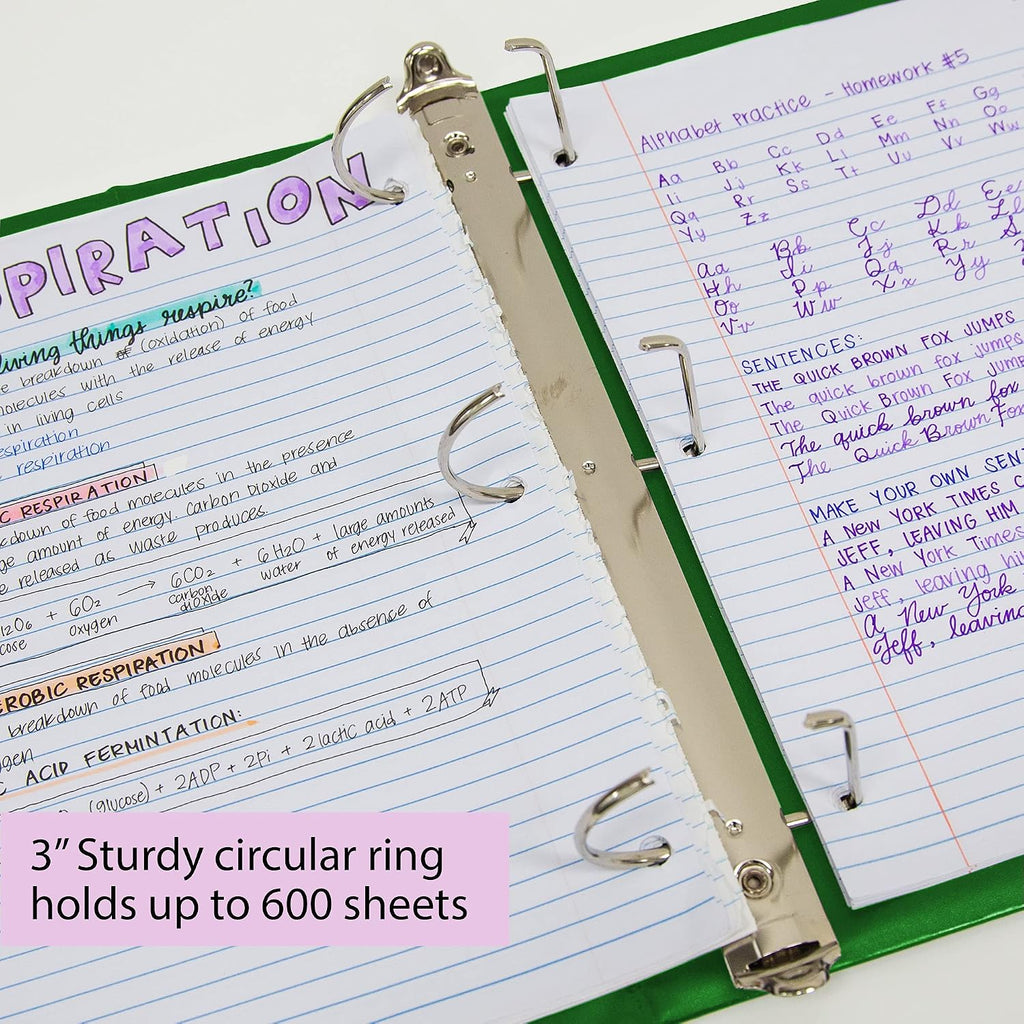 PIRATION
living things respire?
breakdown of (oxidation) of food
molecules with the release of energy
in living cells
respiration
respiration
C RESPIRATION
kdown of food molecules in the presence
ge amount of energy. carbon Dioxide and
e released as waste produces.
12O6 + 6O2 → 6CO2 + 6H2O + large amounts
cose oxygen carbon dioxide water of energy released
EROBIC RESPIRATION
breakdown of food molecules in the absence of
gen
C ACID FERMINTATION:
(glucose) + 2ADP + 2Pi + 2lactic acid + 2ATP
Alphabet Practice - Homework #5
Aa Bb Cc Dd Ee Ff Gg
Ii Jj Kk Ll Mm Nn Oo
Qq Rr Ss Tt Uu Vv Ww
Yy Zz
Aa Bb Cc Dd Ee
Hh Ii Jj Kk Ll
Oo Pp Qq Rr S
Vv Ww Xx Yy
SENTENCES:
THE QUICK BROWN FOX JUMPS
The quick brown fox jumps
The Quick Brown Fox Jumps
The quick brown fox
The Quick Brown Fox
MAKE YOUR OWN SENT
A NEW YORK TIMES C
JEFF, LEAVING HIM
A New York Times
Jeff, leaving hi
A New York
Jeff, leaving
3” Sturdy circular ring
holds up to 600 sheets